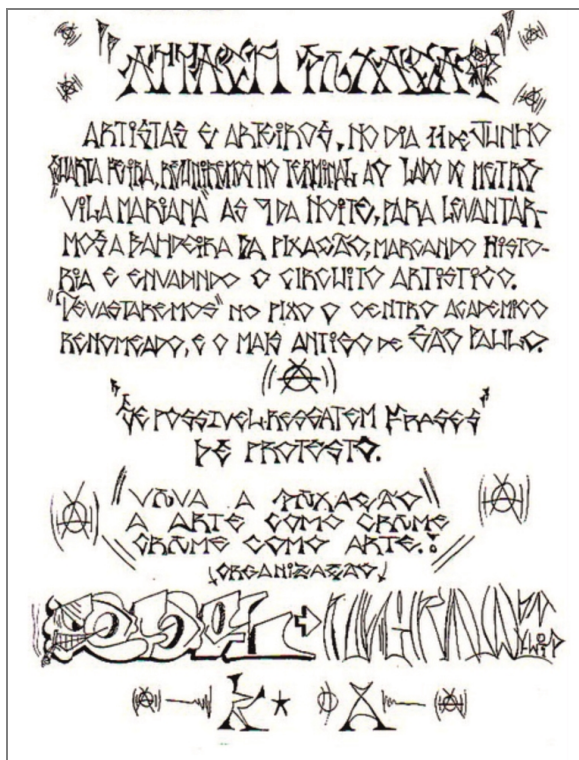 PIXAÇÃO
ARTISTAS E ARTEIROS, NO DIA 11 DE JUNHO
QUARTA FEIRA, REUNIREMOS NO TERMINAL AO LADO DO METRÔ
"VILA MARIANA" AS 7 DA NOITE, PARA LEVANTAR-
MOS A BANDEIRA DA PIXAÇÃO, MARCANDO HISTO-
RIA E ENVADINDO O CIRCUITO ARTISTICO.
"DEVASTAREMOS" NO PIXO O CENTRO ACADEMICO
RENOMEADO, E O MAIS ANTIGO DE SÃO PAULO.
"SE POSSIVEL RESGATEM FRASES"
DE PROTESTO.
"VIVA A PIXAÇÃO"
A ARTE COMO CRIME
CRIME COMO ARTE.
(ORGANIZAÇÃO)